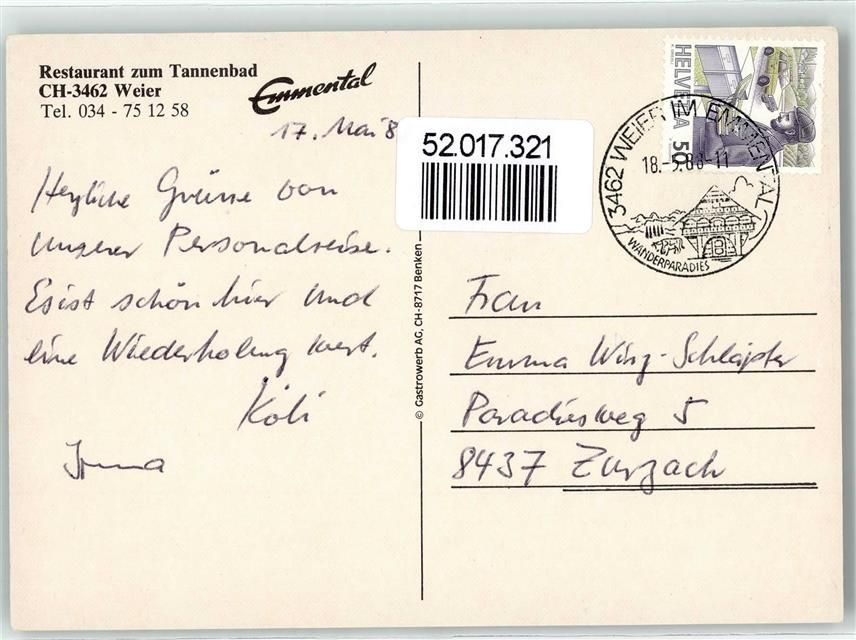 Restaurant zum Tannenbad
CH-3462 Weier
Tel. 034 - 75 12 58
Emmental
17. Mai 8
52.017.321
Herzliche Grüsse von
unserer Personalreise.
Es ist schön hier und
eine Wiederholung wert.
Köbi
Irma
© Gastrowerb AG, CH-8717 Benken
HELVETIA 50
3462 WEIER IM EMMENTAL
18.-5.88-11
WANDERPARADIES
Frau
Emma Winz-Schläpfer
Paradiesweg 5
8437 Zurzach